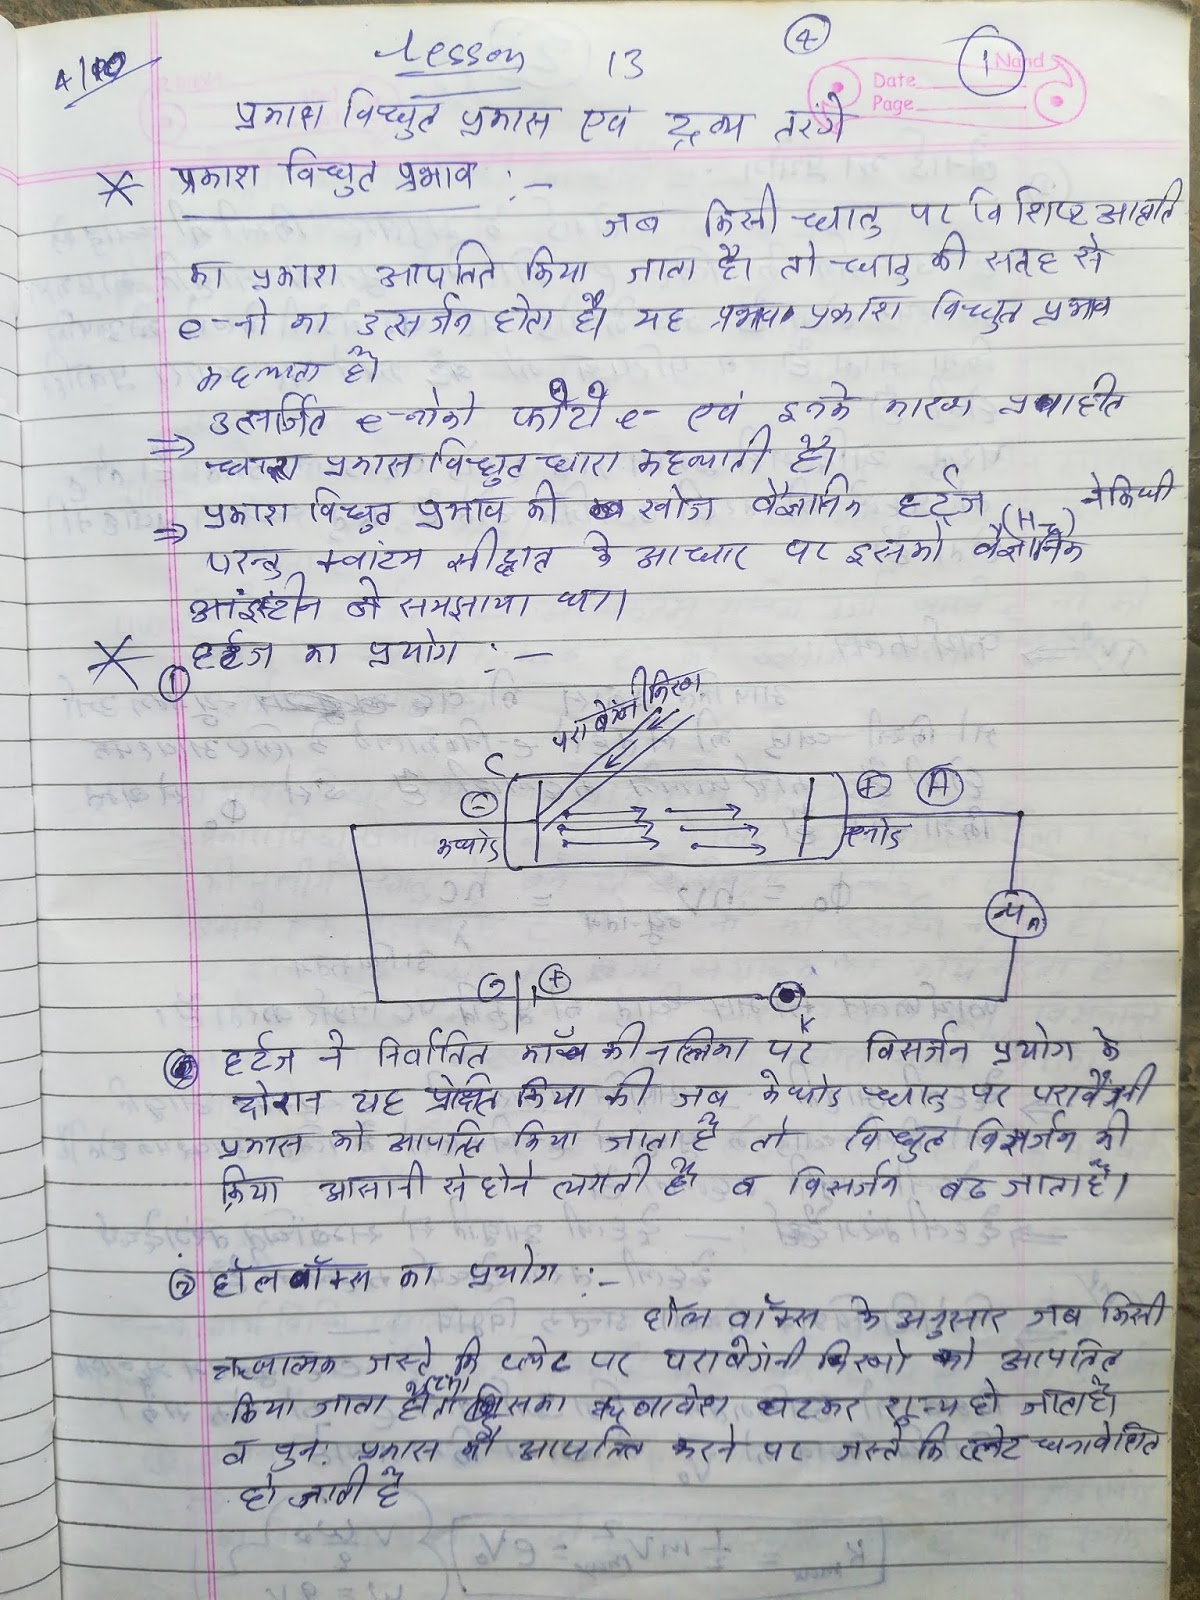 4/10
Lesson 13
4
1
Nand
Date
Page
प्रकाश विध्धुत प्रकास एवं द्रव्य तरंगे
प्रकाश विध्धुत प्रभाव :-
जब किसी धातु पर विशिष्ट आवृति
का प्रकाश आपतित किया जाता है। तो धातु की सतह से
e-नो का उत्सर्जन होता है। यह प्रभाव प्रकाश विध्धुत प्रभाव
कहलाता है।
⇒ उत्सर्जित e-नोको फोटो e- एवं इनके कारण प्रवाहीत
धारा प्रकास विध्धुत धारा कहलाती है।
⇒ प्रकाश विध्धुत प्रभाव की खोज वैज्ञानिक हर्टज (Hz) ने किथी
परन्तु क्वांटम सीद्धांत के आधार पर इसको वैज्ञानिक
आंइस्टीन ने समझाया था।
① हर्टज का प्रयोग :-
पराबेगंनी किरण
C
⊖
⊕ A
कैथोड
एनोड
μA
⊖ ⊕
K
हर्टज ने निर्वातित काँच की नलिका पर विसर्जन प्रयोग के
दोरान यह प्रेक्षित किया की जब केथोड धातु पर पराबैंगनी
प्रकास को आपतित किया जाता है तो विध्धुत विसर्जन की
क्रिया आसानी से होने लगती है व विसर्जन बढ जाता है।
② हॉलवॉक्स का प्रयोग :-
हॉलवॉक्स के अनुसार जब किसी
ऋणात्मक जस्ते कि प्लेट पर पराबेगंनी किरणो को आपतित
किया जाता है तो इसका ऋणावेश घटकर शून्य हो जाता है।
व पुनः प्रकास को आपतित करने पर जस्ते कि प्लेट धनावेशित
हो जाती है